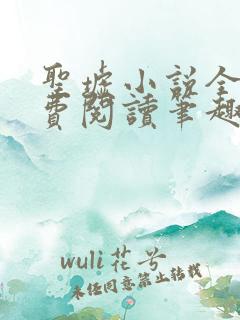 聖墟小說全
費閱讀筆趣
wuli花兮
未经同意禁止转载